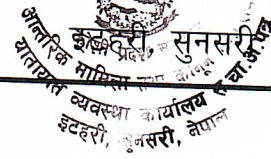 इटहरी, सुनसरी
प्रदेश
आन्तरिक मामिला तथा कानून
यातायात व्यवस्था कार्यालय स.चा.अ.पत्र
इटहरी, सुनसरी, नेपाल